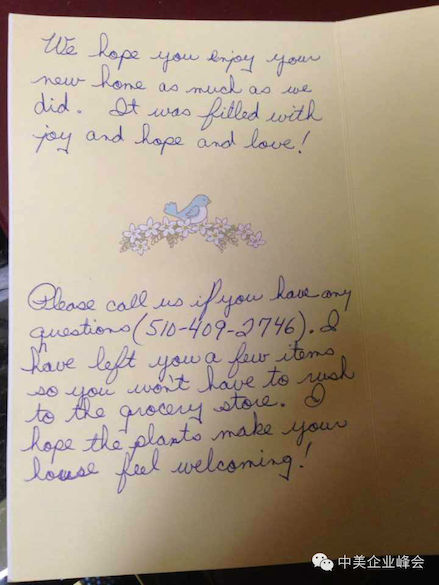 We hope you enjoy your
new home as much as we
did. It was filled with
joy and hope and love!
Please call us if you have any
questions (510-409-2746). I
have left you a few items
so you won't have to rush
to the grocery store. I
hope the plants make your
house feel welcoming!
中美企业峰会